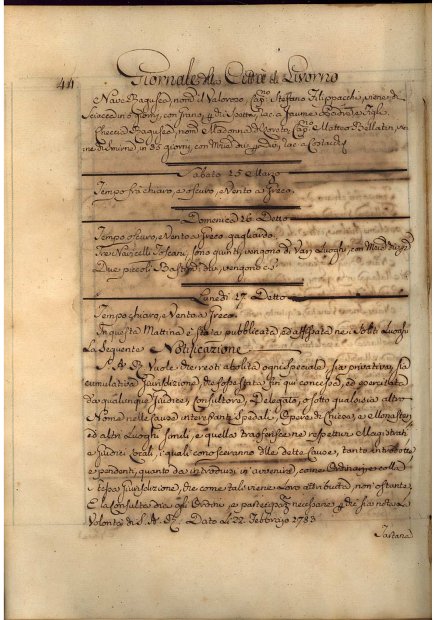 44 Giornale della Città di Livorno
Nave Ragusea, nom.ª il Valoroso, Cap.º Steffano Filippacchi, viene di
Sciacca in giorni, con Grano
Checcia Ragusea, nom.ª Madonna di Loreto, Cap.º Matteo Bellatin, vie
ne di Smirne, in 35 giorni, con Mer.
Sabato 15 Marzo
Tempo frà chiaro, e oscuro, e Vento a Greco.
Domenica 16 Detto
Tempo oscuro, e Vento a Greco gagliardo.
Trè Navicelli Toscani, sono quì, vengono di Varj Luoghi, con
Due piccoli Bastim.ti, vengono
Lunedì 17 Detto
Tempo chiaro, e Vento a Greco.
In questa Mattina è stata pubblicata ed affissata ne' Soliti Luoghi
La Seguente Notificazione
S. A. R. Vuole che resti abolita ogni speciale, sia privativa, sia
cumulativa Giurisdizione, che fosse stata fin quì concessa, ed esercitata
da qualunque Giudice, Consultore, Delegato, o sotto qualsisia altro
Nome nelle Cause interessanti Spedali, Opere di Chiesa, e Monasteri
ed altri Luoghi simili, e quella trasferisce ne' respettivi Magistrati
e Giudici Locali, i quali conosceranno delle dette Cause, tanto introdotte
e pendenti, quanto da introdursi in avvenire, come Ordinarj, e colla
stessa Giurisdizione, che come tali viene Loro attribuita, non ostante
E la Consulta dia gli Ordini, e partecipaz. necessarie
Volontà di S. A. R. Dato li 22. Febbrajo 1783